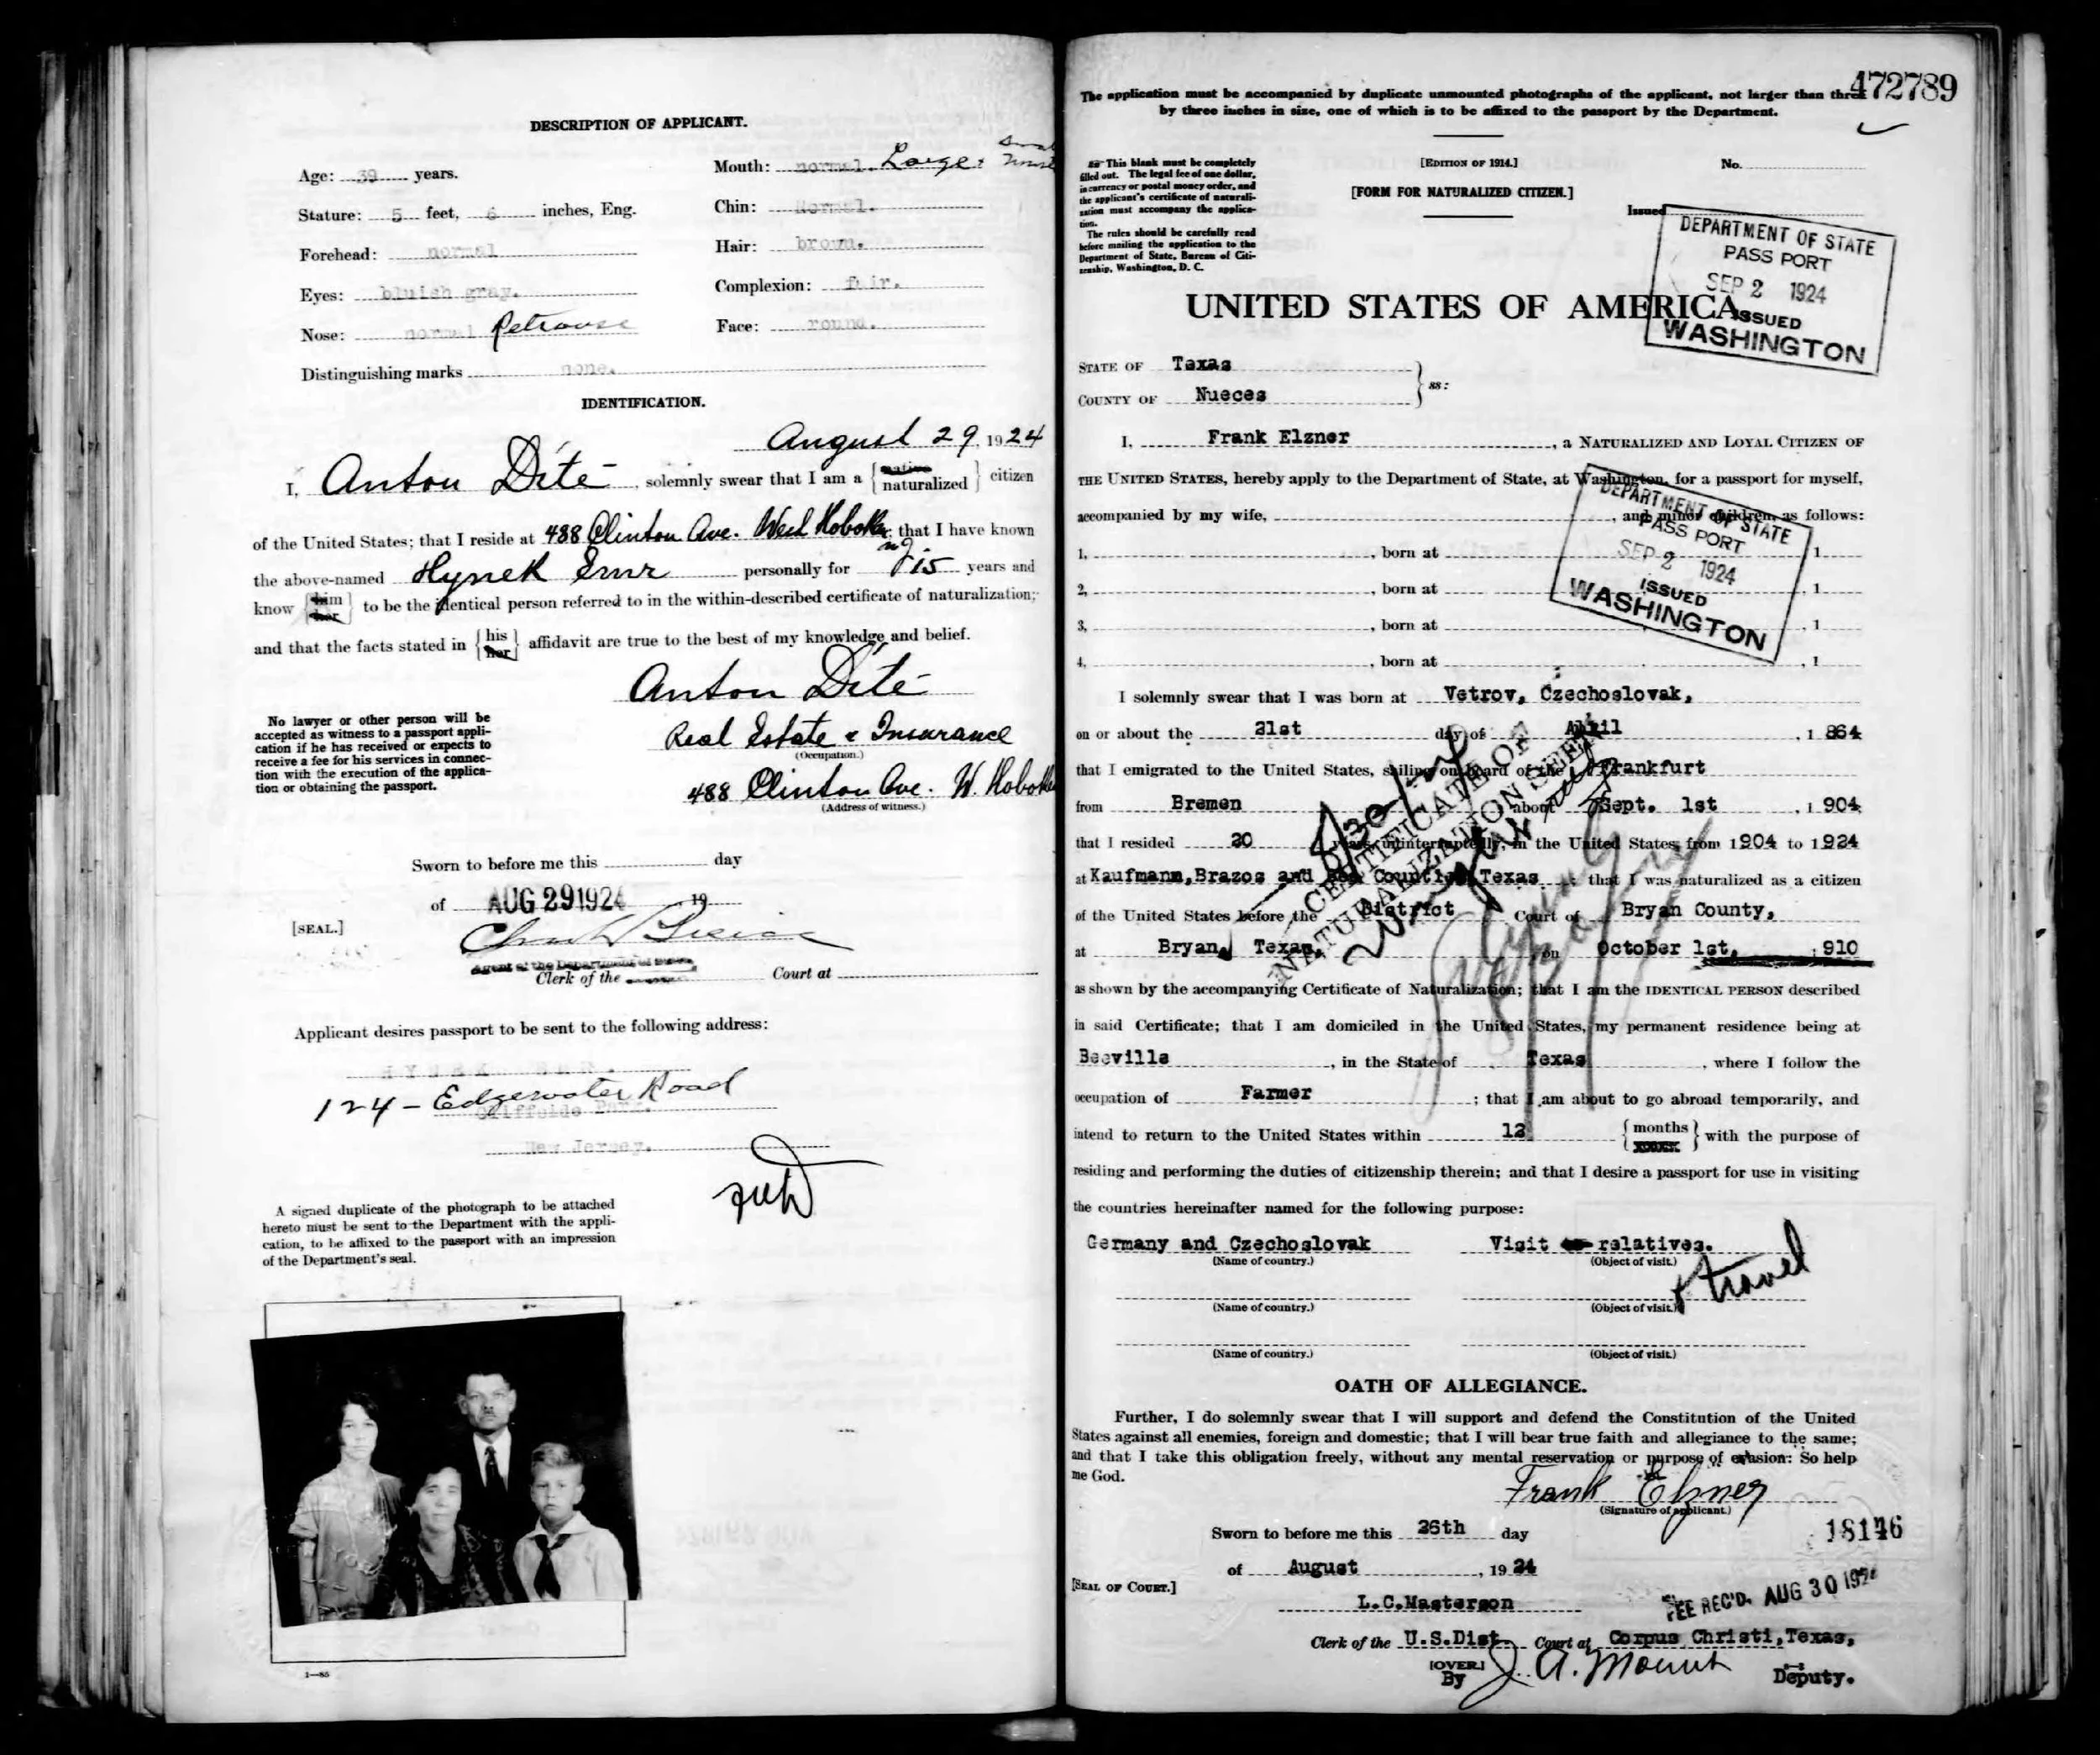 DESCRIPTION OF APPLICANT.
Age: 39 years.
Mouth: normal. Large.
Stature: 5 feet, 6 inches, Eng.
Chin: Normal.
Forehead: normal
Hair: brown.
Eyes: bluish gray.
Complexion: fair.
Nose: normal
Face: round.
Distinguishing marks none.
IDENTIFICATION.
August 29, 1924
I, Anton Dite, solemnly swear that I am a {native naturalized} citizen
of the United States; that I reside at 488 Clinton Ave. West Hoboken; that I have known
the above-named Hynek personally for 15 years and
know {him her} to be the identical person referred to in the within-described certificate of naturalization;
and that the facts stated in {his her} affidavit are true to the best of my knowledge and belief.
Anton Dite
No lawyer or other person will be
accepted as witness to a passport appli-
cation if he has received or expects to
receive a fee for his services in connec-
tion with the execution of the applica-
tion or obtaining the passport.
Real Estate & Insurance
(Occupation.)
488 Clinton Ave. W. Hoboken
(Address of witness.)
Sworn to before me this day
of AUG 29 1924 19
[SEAL.]
Agent of the Department of State
Clerk of the Court at
Applicant desires passport to be sent to the following address:
124 - Edgewater Road
Cliffside Park.
New Jersey.
A signed duplicate of the photograph to be attached
hereto must be sent to the Department with the appli-
cation, to be affixed to the passport with an impression
of the Department's seal.
1—85
472789
The application must be accompanied by duplicate unmounted photographs of the applicant, not larger than three
by three inches in size, one of which is to be affixed to the passport by the Department.
This blank must be completely
filled out. The legal fee of one dollar,
in currency or postal money order, and
the applicant's certificate of naturali-
zation must accompany the applica-
tion.
The rules should be carefully read
before mailing the application to the
Department of State, Bureau of Citi-
zenship, Washington, D. C.
[EDITION OF 1914.]
[FORM FOR NATURALIZED CITIZEN.]
No.
Issued
DEPARTMENT OF STATE
PASS PORT
SEP 2 1924
ISSUED
WASHINGTON
UNITED STATES OF AMERICA.
STATE OF Texas
COUNTY OF Nueces
ss:
I, Frank Elzner, a NATURALIZED AND LOYAL CITIZEN OF
THE UNITED STATES, hereby apply to the Department of State, at Washington, for a passport for myself,
accompanied by my wife, , and minor children, as follows:
DEPARTMENT OF STATE
PASS PORT
SEP 2 1924
ISSUED
WASHINGTON
1, , born at , 1
2, , born at , 1
3, , born at , 1
4, , born at , 1
I solemnly swear that I was born at Vetrov, Czechoslovak,
on or about the 21st day of April, 1864
that I emigrated to the United States, sailing on board of the Frankfurt
from Bremen about Sept. 1st, 1904
that I resided 20 years, uninterruptedly, in the United States, from 1904 to 1924
at Kaufmann, Brazos and Bee Counties Texas; that I was naturalized as a citizen
of the United States before the District Court of Bryan County,
at Bryan, Texas, on October 1st, 1910
CERTIFICATE OF
NATURALIZATION SEEN
as shown by the accompanying Certificate of Naturalization; that I am the IDENTICAL PERSON described
in said Certificate; that I am domiciled in the United States, my permanent residence being at
Beeville, in the State of Texas, where I follow the
occupation of Farmer; that I am about to go abroad temporarily, and
intend to return to the United States within 12 {months} with the purpose of
residing and performing the duties of citizenship therein; and that I desire a passport for use in visiting
the countries hereinafter named for the following purpose:
Germany and Czechoslovak Visit relatives.
(Name of country.) (Object of visit.)
& travel
(Name of country.) (Object of visit.)
(Name of country.) (Object of visit.)
OATH OF ALLEGIANCE.
Further, I do solemnly swear that I will support and defend the Constitution of the United
States against all enemies, foreign and domestic; that I will bear true faith and allegiance to the same;
and that I take this obligation freely, without any mental reservation or purpose of evasion: So help
me God.
Frank Elzner
(Signature of applicant.)
Sworn to before me this 26th day
18146
of August, 1924
[SEAL OF COURT.]
FEE REC'D. AUG 30 1924
L.C.Masterson
Clerk of the U.S.Dist. Court at Corpus Christi, Texas,
[OVER.]
By J. A. Mount Deputy.